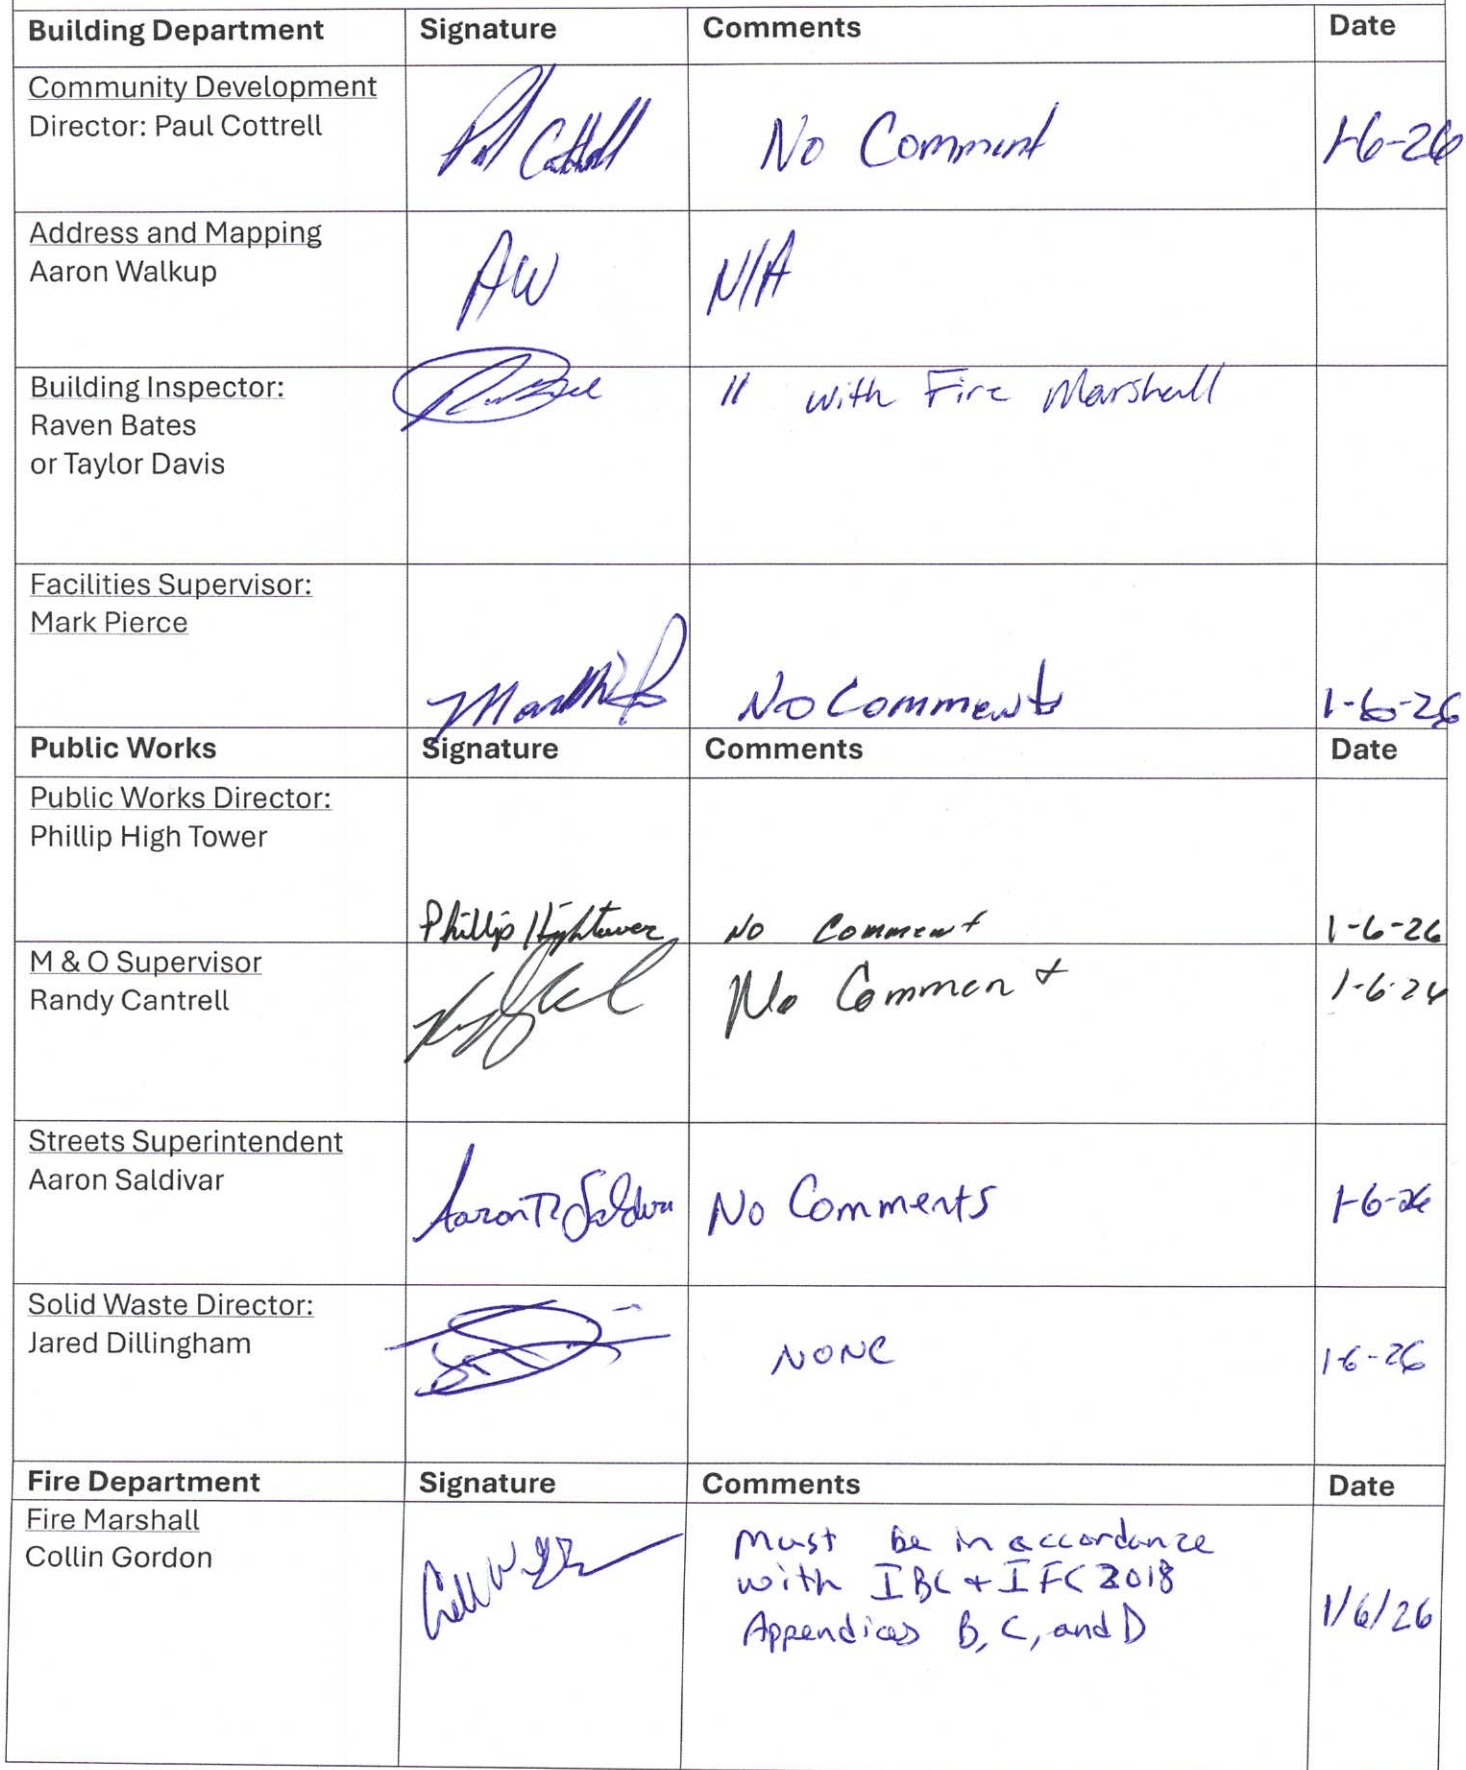 Building Department Signature Comments Date
Community Development
Director: Paul Cottrell
Paul Cottrell No Comment 1-6-26
Address and Mapping
Aaron Walkup
AW N/A
Building Inspector:
Raven Bates
or Taylor Davis
" with Fire Marshall
Facilities Supervisor:
Mark Pierce
No Comments 1-6-26
Public Works Signature Comments Date
Public Works Director:
Phillip High Tower
Phillip Hightower No Comment 1-6-26
M & O Supervisor
Randy Cantrell
No Comment 1-6-26
Streets Superintendent
Aaron Saldivar
No Comments 1-6-26
Solid Waste Director:
Jared Dillingham
NONE 1-6-26
Fire Department Signature Comments Date
Fire Marshall
Collin Gordon
Must be in accordance
with IBC + IFC 2018
Appendices B, C, and D
1/6/26